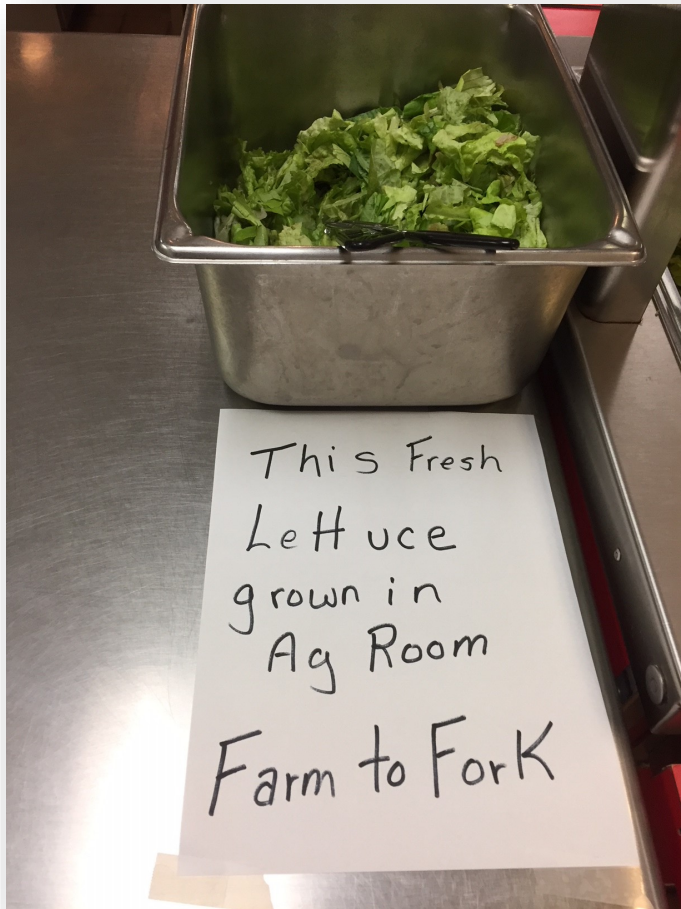 This Fresh
Lettuce
grown in
Ag Room
Farm to Fork